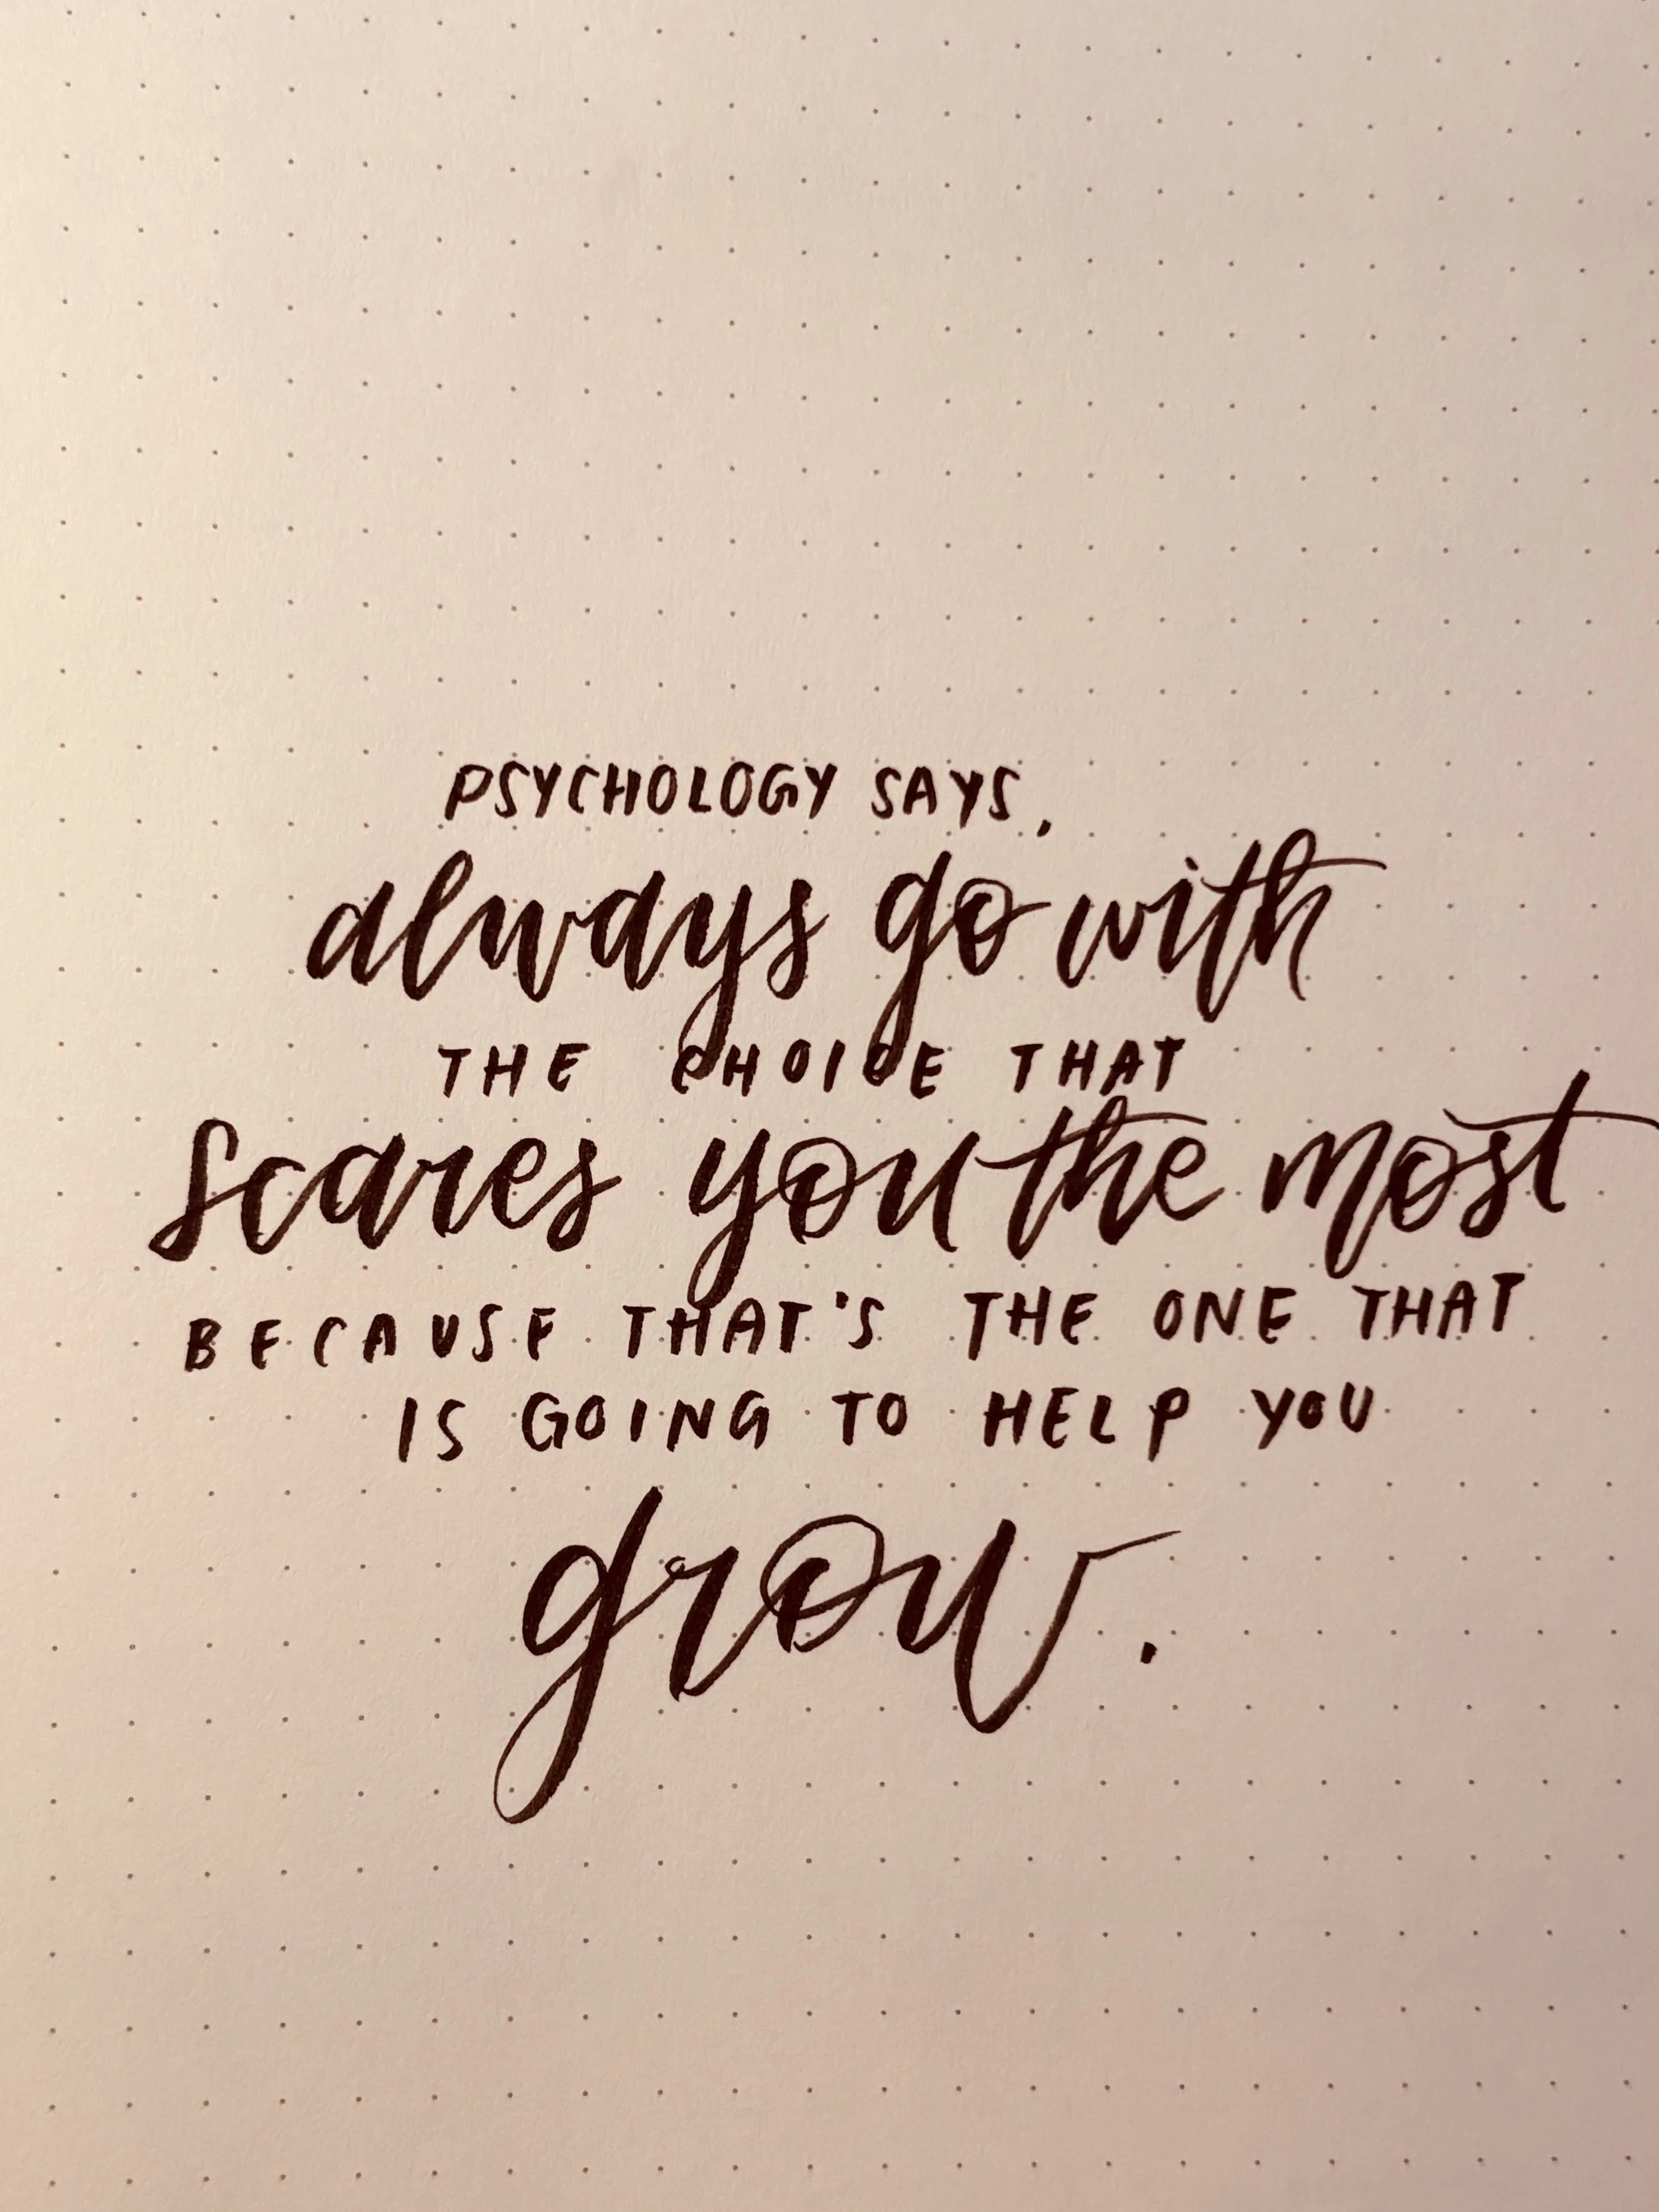 PSYCHOLOGY SAYS,
always go with
THE CHOICE THAT
scares you the most
BECAUSE THAT'S THE ONE THAT
IS GOING TO HELP YOU
grow.